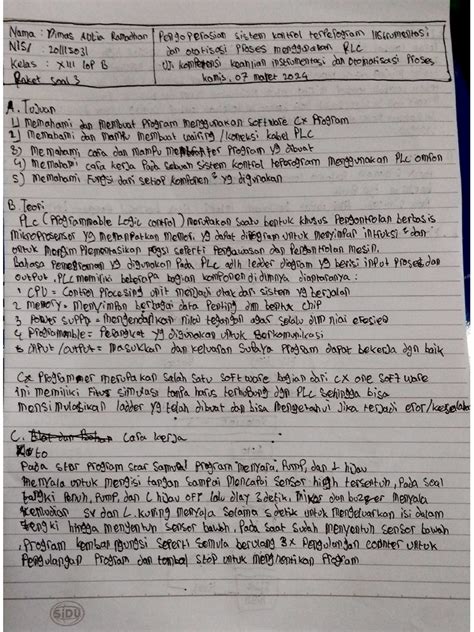 Nama : Dimas Aditia Ramadhan
NIS/ : 20112031
Kelas : XIII IOP B
Paket soal 3
Pengoperasian sistem kontrol terprogram Instrumentasi
dan otomatisasi Proses menggunakan PLC
Uji kompetensi keahlian instrumentasi dan otomatisasi Proses
kamis, 07 maret 2024
A. Tujuan
1) Memahami dan membuat Program menggunakan software Cx Program
2) Memahami dan mampu membuat wairing / koneksi kabel PLC
3) Memahami cara dan mampu Program yg dibuat
4) Memahami cara kerja Pada sebuah sistem kontrol terprogram menggunakan PLC omron
5) Memahami Fungsi dari setiap komponen² yg digunakan
B. Teori
PLC (Programmable Logic control) merupakan suatu bentuk khusus Pengontrolan berbasis
yg memanfaatkan memori yg dapat diprogram untuk menyimpan dan
untuk fungsi seperti Pengawasan dan Pengontrolan mesin.
Bahasa Pemegraman yg digunakan Pada PLC adlh ledder diagram yg berisi input Proses dan
output. PLC memiliki beberapa bagian komponen didlmnya diantaranya :
1 CPU = Control Procesing unit menjadi otak dari sistem yg berjalan
2 memory = menyimpan berbagai data Penting dlm bentuk chip
3 Power supply = mengendalikan nilai tegangan agar selalu dlm nilai
4 Programmable = Perangkat yg digunakan untuk Berkomunikasi
5 input/output = masukkan dan keluaran Supaya Program dapat bekerja dgn baik
Cx Programmer merupakan salah satu software bagian dari cx one software
ini memiliki Fitur simulasi tanpa harus terhubung dgn PLC sehingga bisa
mensimulasikan ladder yg telah dibuat dan bisa mengetahui Jika terjadi eror/
C. Cara kerja
Pada star Program star Program menyala. Pump, dan L hijau
menyala untuk mengisi tangan sampai Mencapai sensor high tersentuh, Pada soal
tangki Penuh, Pump, dan L hijau off lalu dlay 3 detik, Mixer dan buzzer menyala
kemudian SV dan L. kuning menyala selama 5 detik untuk mengeluarkan isi dalam
tangki hingga menyentuh sensor bawah, Pada saat sudah menyentuh sensor bawah
, Program kembali seperti semula berulang 3x Pengulangan counter untuk
Pengulangan Program dan tombol stop untuk menghentikan Program
SIDU